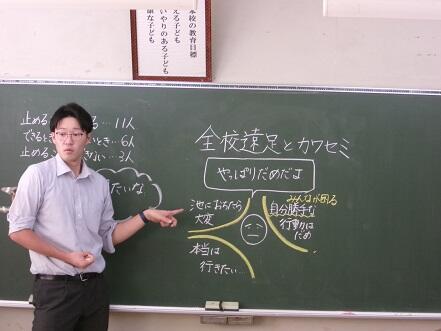 本校の教育目標
える子ども
いやりのある子ども
康な子ども
止める
る…11人
できる
とき…6人
止める
きない…3人
たいな
全校遠足とカワセミ
やっぱりだめだよ
池におちたら
大変
本当は
行きたい…
みんなが困る
自分勝手な
行動は
だめ